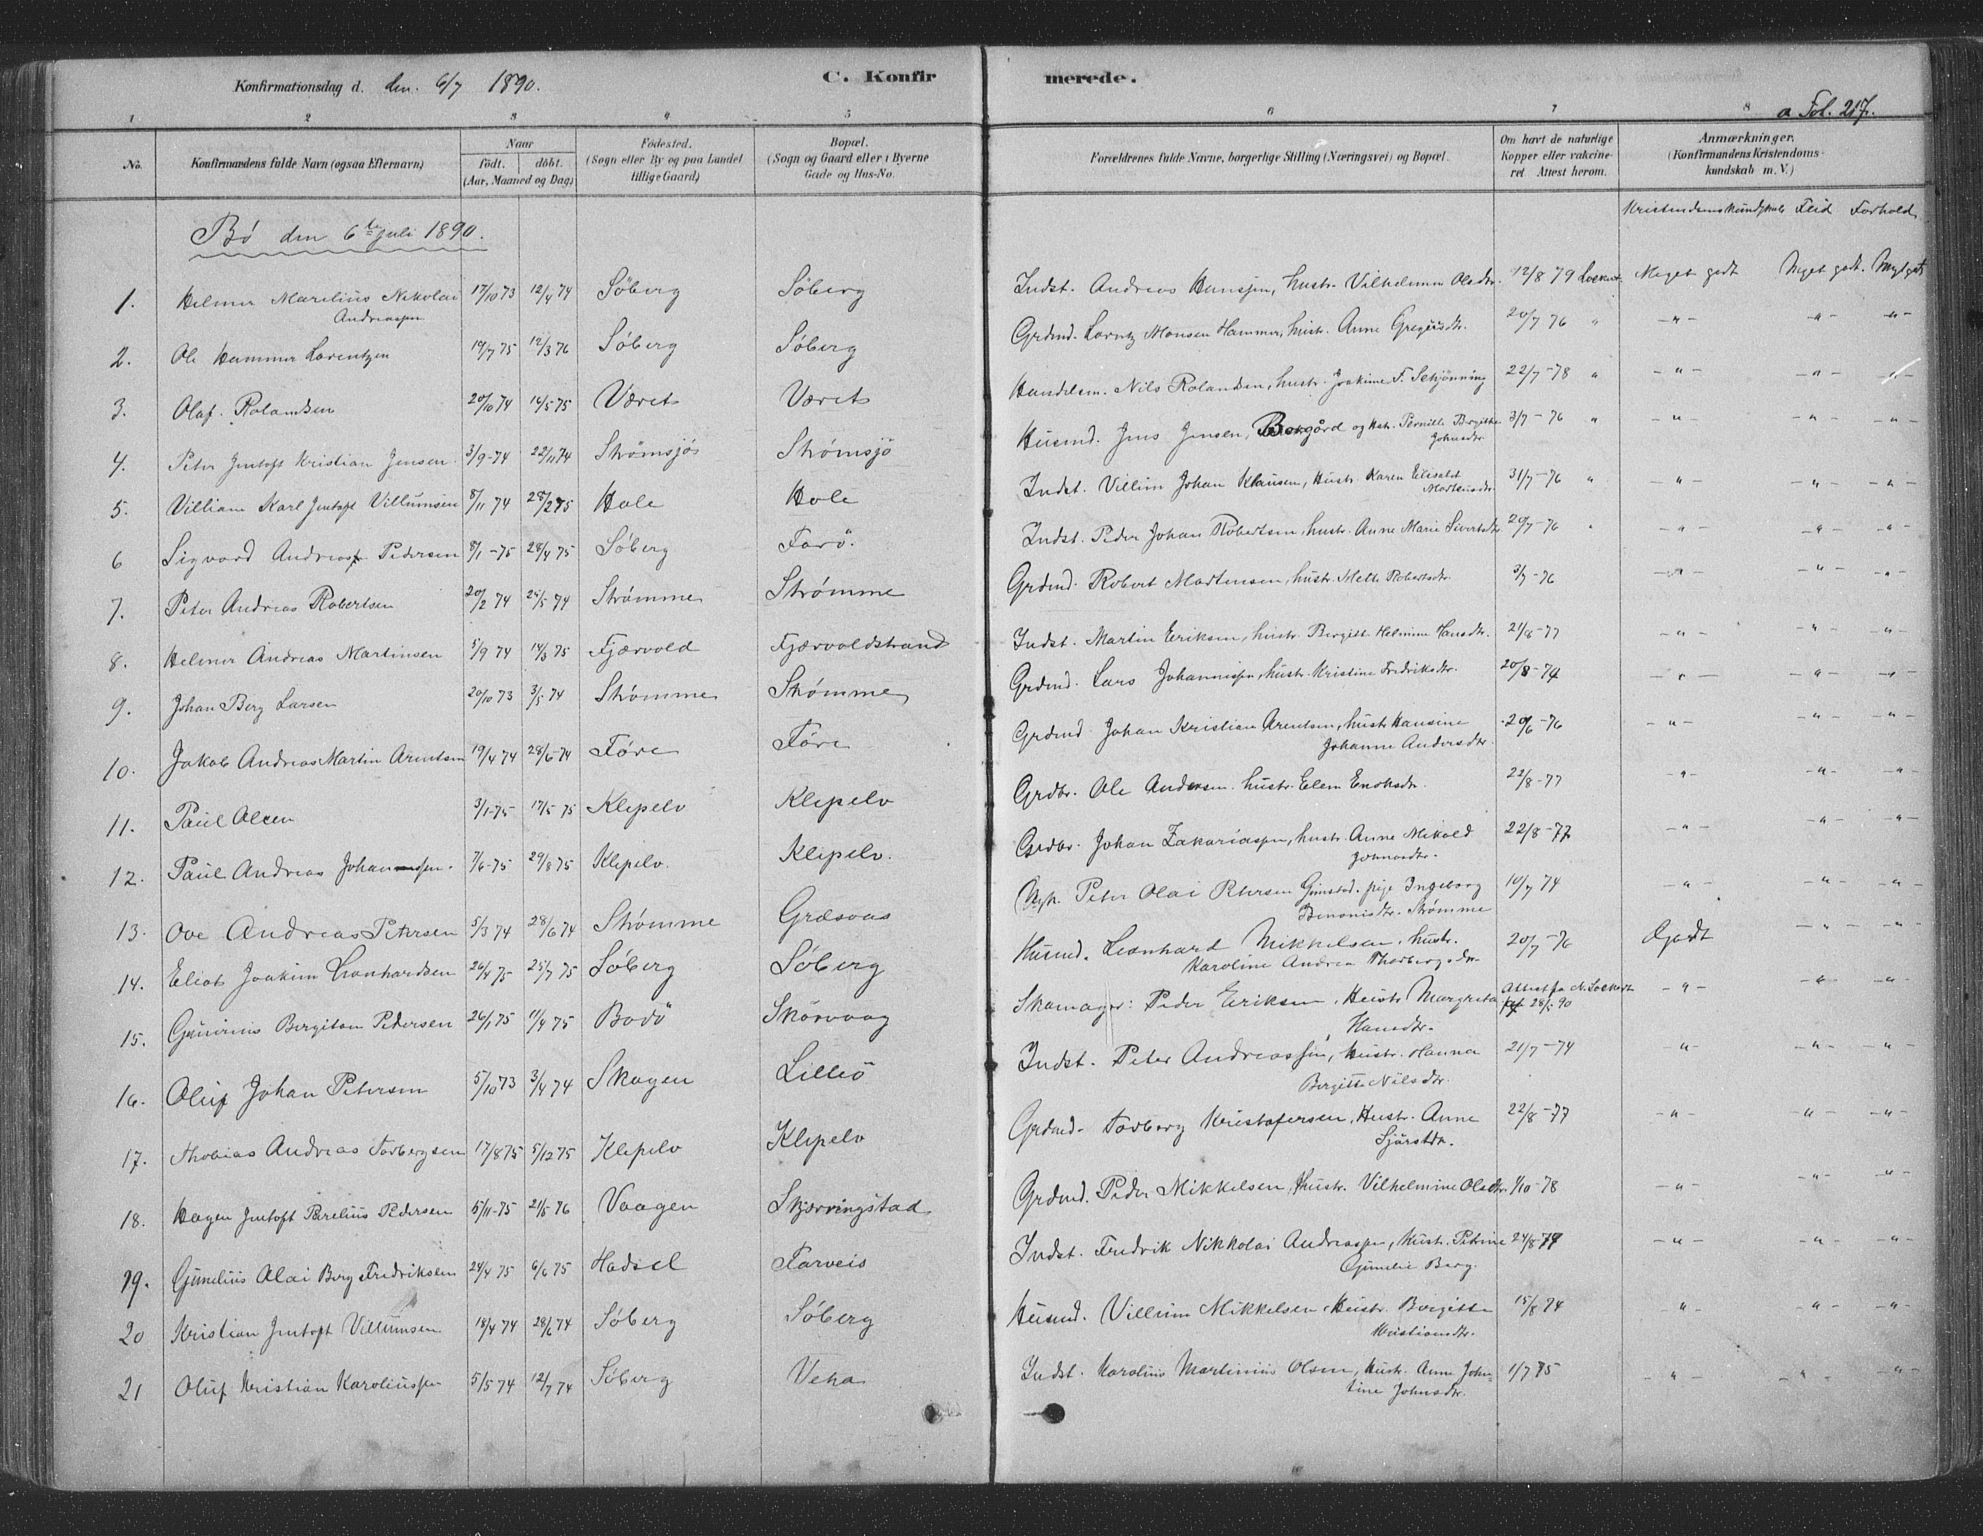 Konfirmationsdag d. den. 6/7 1890.
C. Konfirmerede.
a Fol. 217.
1 2 3 4 5 6 7 8
No.
Konfirmandens fulde Navn (ogsaa Efternavn)
Naar
født. døbt.
(Aar, Maaned og Dag)
Fødested.
(Sogn eller By og paa Landet
tillige Gaard)
Bopæl.
(Sogn og Gaard eller i Byerne
Gade og Hus-No.
Forældrenes fulde Navne, borgerlige Stilling (Næringsvei) og Bopæl.
Om havt de naturlige
Kopper eller vakcine-
ret Attest herom.
Anmærkninger.
(Konfirmandens Kristendoms-
kundskab m. V.)
Kristendomskundskab Flid Forhold
Bø den 6te Juli 1890.
1. Helmer Marelius Nikolai 17/10 73 12/4 74 Søberg Søberg Indst. Andreas Hansen, hustr. Vilhelmine Olsdtr. 12/8 79 Lockert Meget godt Meget godt. Meget godt
Andreassen
2. Ole Hammer Lorentzen 19/7 75 12/3 76 Søberg Søberg Grdmd. Lorntz Monsen Hammer, hustr. Anne Gregersdtr. 20/7 76 " -"- -"- -"-
3. Olaf. Rolandsen 20/10 74 16/5 75 Været Været Handelsm. Nils Rolandsen, hustr. Joakime F. Schjønning 22/7-78 " -"- -"- -"-
4. Peter Jentoft Kristian Jensen 3/9-74 22/11 74 Strømsjø Strømsjø Husmd. Jens Jensen, Borgård og Hstr. Pernille Birgitte 3/7-76 " -"- -"- -"-
Johnsdtr.
5. Villiam Karl Jentoft Villumsen 8/11 74 28/2 75 Hole Hole Indst. Villum Johan Klausen, Hustr. Karen Elisabet 31/7-76 " -"- -"- -"-
6 Sigvard Andreas Pedersen 8/1-75 28/4 75 Søberg Farø. Indst. Peder Johan Robertsen, hustr. Anne Marie Sivertsdtr 20/7-76 " -"- -"- -"-
7. Peter Andreas Robertsen 20/2 74 25/5 74 Strømme Strømme Grdmd. Robert Martensen, hustr. Mette Robertsdtr. 3/7-76 -"- -"- -"-
8. Helmer Andreas Martinsen 5/9 74 14/3 75 Fjærvold Fjærvoldstrand Indst. Martin Eriksen, hustr. Bergitte Helmine Hansdtr. 21/8-77 -"- -"- -"-
9. Johan Berg Larsen 20/10 73 3/5 74 Strømme Strømme Grdmd. Lars Johannissen, hustr. Kristine Fredriksdtr. 20/8-74 -"- -"- -"-
10. Jakob Andreas Martin Arntsen 19/4 74 28/6-74 Føre Føre Grdmd. Johan Kristian Arentsen, hustr Hansine 20/6-76 -"- -"- -"-
Johanne Andersdtr.
11. Paul Olsen 3/1-75 17/5 75 Klepelv Klepelv Grdbr. Ole Andersen. hustr. Elen Enoksdtr. 22/8-77 -"- -"- -"-
12. Paul Andreas Johanssen. 7/6-75 29/8 75 Klepelv. Klepelv. Grdbr. Johan Zakariassen, hustr. Anne Mikold 22/8-77 -"- -"- -"-
Johnasdtr.
13. Ove Andreas Petersen 5/3 74 28/6 74 Strømme Græsvas Ugk. Peter Olai Petersen Grimstad. pige Ingeborg 10/7 74 -"- -"- -"-
Benonisdtr. Strømme
14. Eliot Joakim Leonhardsen 26/4 75 25/7 75 Søberg Søberg Husmd. Leonhard Mikkelsen, hustr. 20/7-76 Godt -"- -"-
Karoline Andrea Thorbergsdtr
15. Gunerius Bergiton Pedersen 26/1 75 11/4 75 Bodø Skorvaag Skomager: Peder Eriksen, Hustr Margreta Attest fra N. Lockert -"- -"- -"-
Hansdtr. 28/5 90
16. Oluf Johan Petersen 5/10 73 3/4 74 Skagen Lilleø Indst. Peter Andreassen, Hustr. Hanna 21/7-74 -"- -"- -"-
Bergitte Nilsdtr.
17. Thobias Andreas Torbergsen 17/8 75 5/12 75 Klepelv Klepelv Grdmd. Torberg Kristofersen, Hustr. Anne 22/8-77 -"- -"- -"-
18. Hagen Jentoft Perelius Pedersen 5/11-75 21/5 76 Vaagen Skjærringstad Grdmd. Peder Mikkelsen, Hustr. Vilhelmine Olsdtr. 1/10-78 -"- -"- -"-
19. Gunelius Olai Berg Fredriksen 24/4 75 6/6 75 Hadsel Farveis Indst. Fredrik Nikkolai Andreassen, Hustr. Petrine 24/8 77 -"- -"- -"-
Gunelie Berg.
20 Kristian Jentoft Villumsen 18/4 74 28/6 74 Søberg Søberg Husmd. Villum Mikkelsen, Hustr. Birgitte 15/8 74 -"- -"- -"-
Kristiansdtr.
21 Oluf Kristian Karoliussen 5/5 74 12/7 74 Søberg Veha Indst. Karolius Martinius Olsen, Hustr. Anne John- 1/7 75 -"- -"- -"-
tine Johnsdtr.